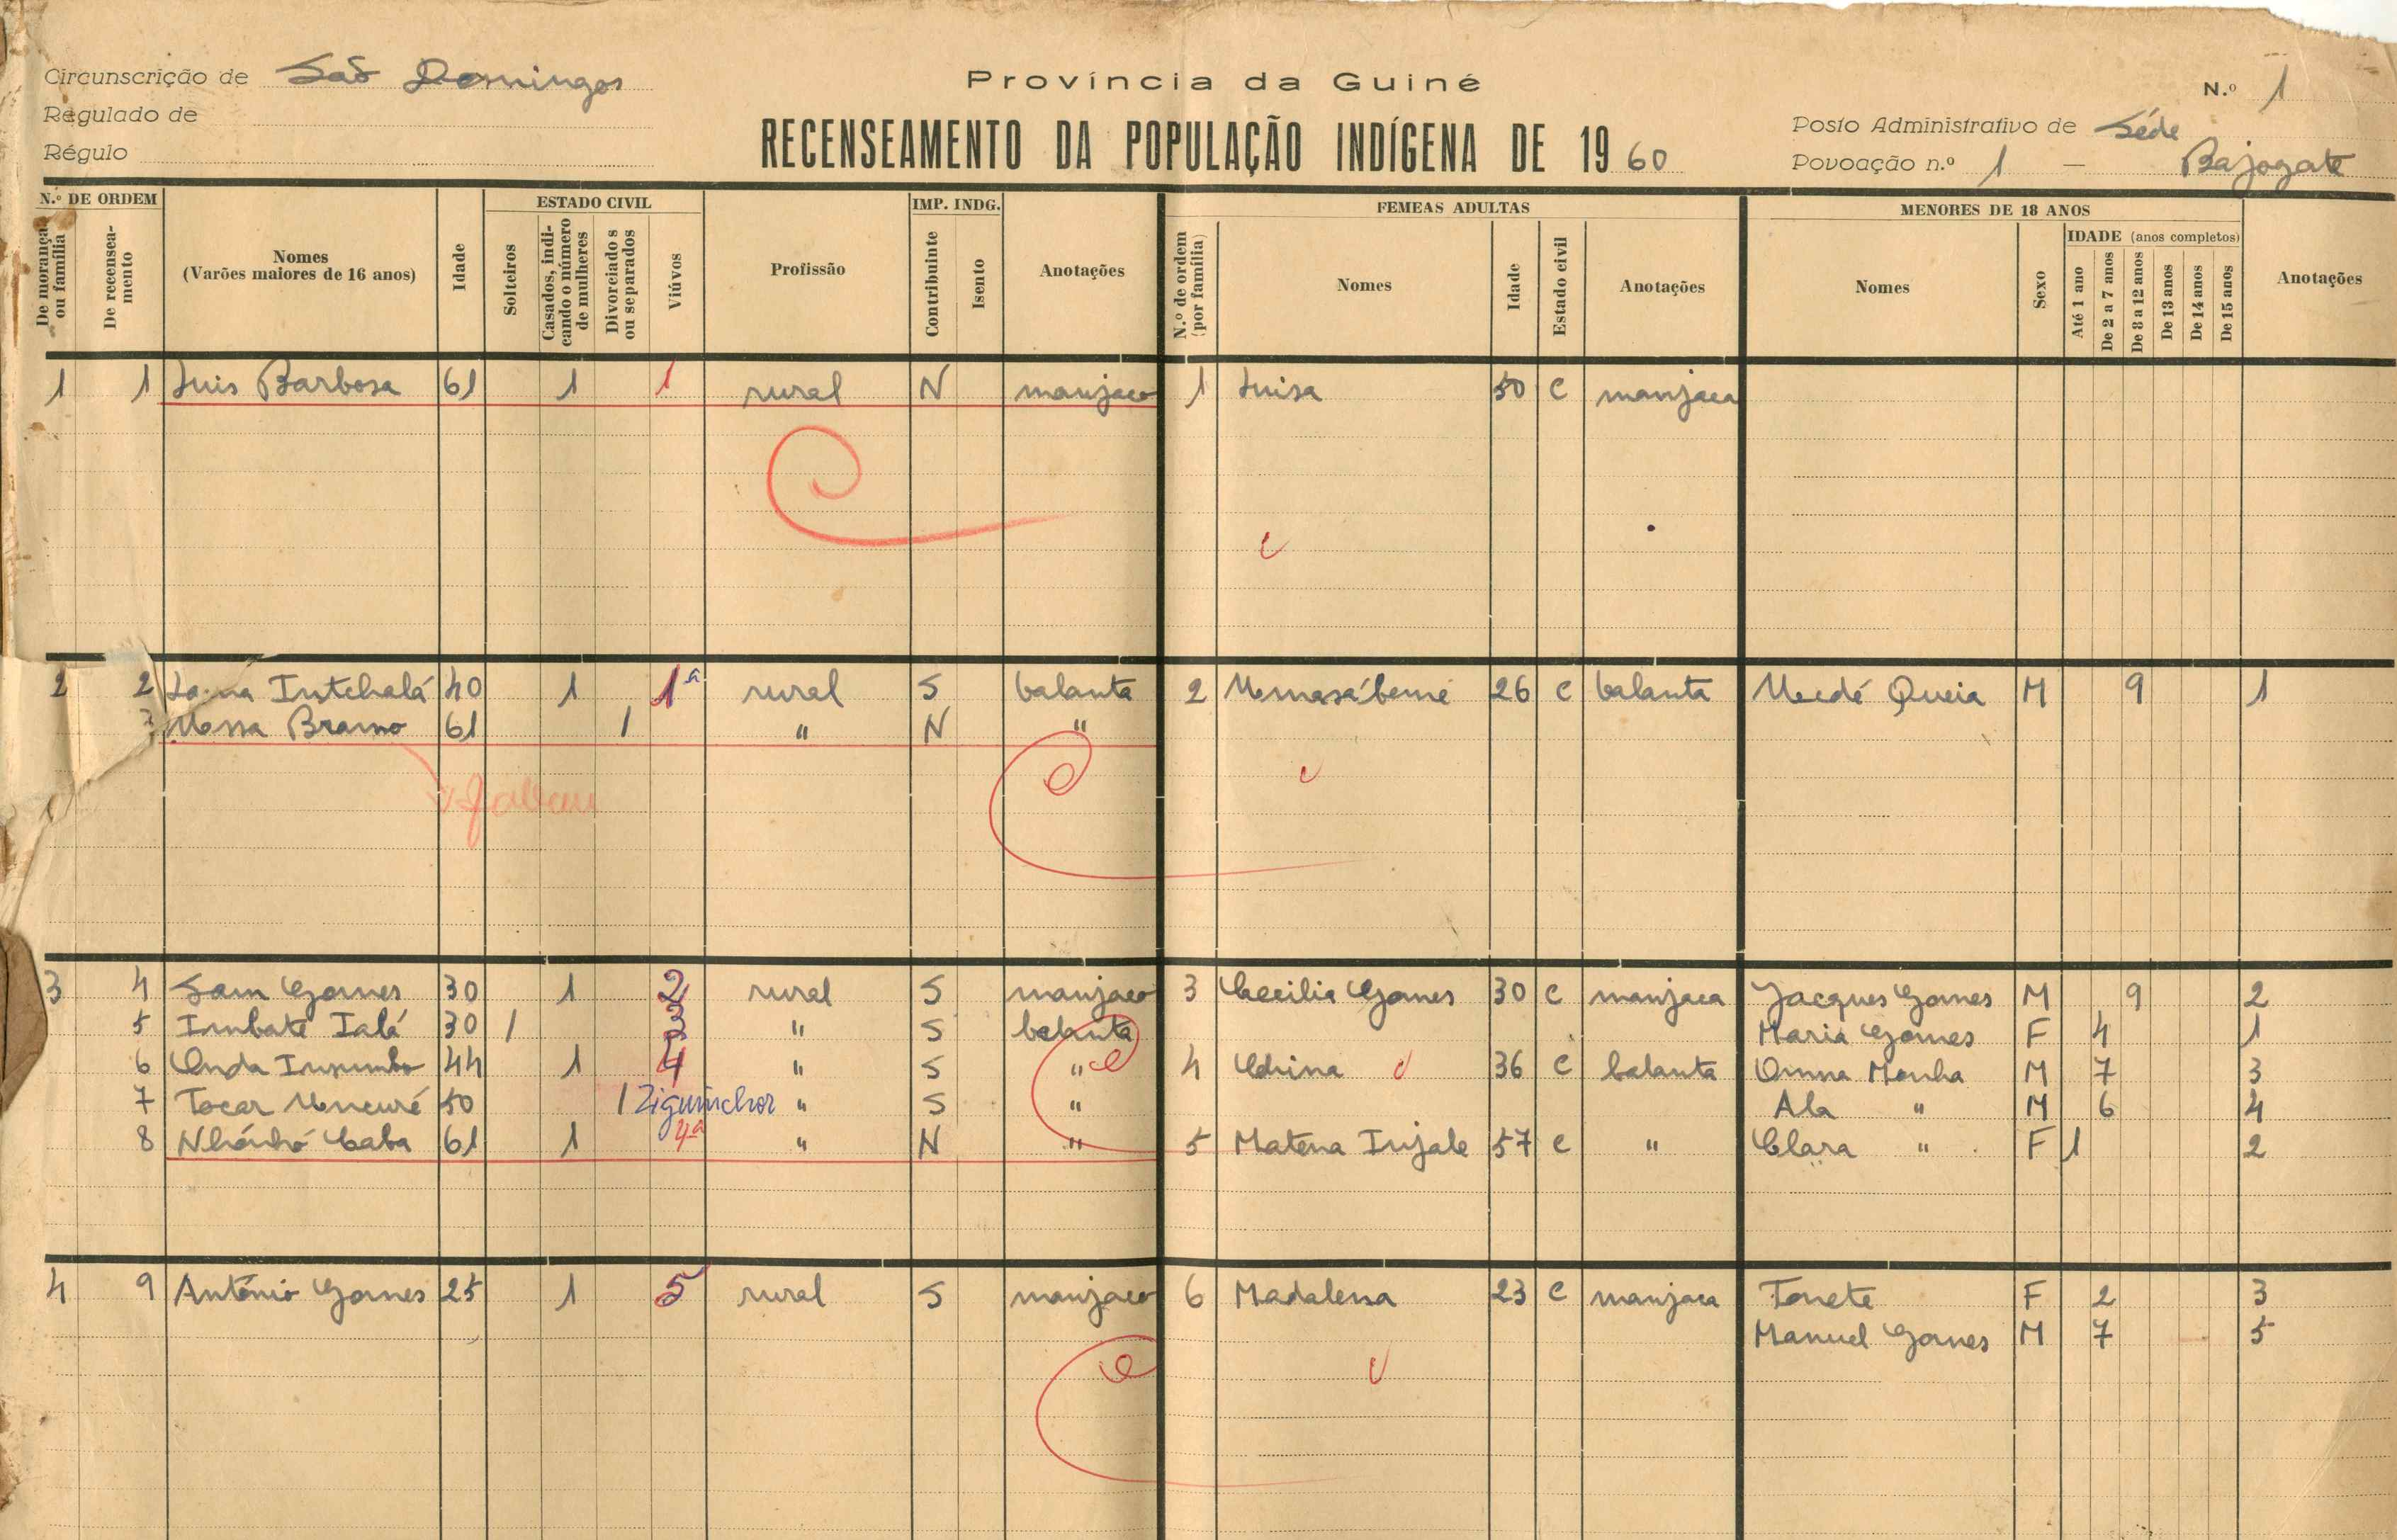 Circunscrição de São Domingos
Regulado de
Régulo
Província da Guiné
RECENSEAMENTO DA POPULAÇÃO INDÍGENA DE 1960
N.º 1
Posto Administrativo de Séde
Povoação n.º 1 — Bajogate
N.º DE ORDEM
De morança ou família
De recenseamento
Nomes
(Varões maiores de 16 anos)
Idade
ESTADO CIVIL
Solteiros
Casados, indicando o número de mulheres
Divorciados ou separados
Viúvos
Profissão
IMP. INDG.
Contribuinte
Isento
Anotações
FEMEAS ADULTAS
N.º de ordem (por família)
Nomes
Idade
Estado civil
Anotações
MENORES DE 18 ANOS
Nomes
Sexo
IDADE (anos completos)
Até 1 ano
De 2 a 7 anos
De 8 a 12 anos
De 13 anos
De 14 anos
De 15 anos
Anotações
1 1 Luis Barbosa 61 1 1 rural N manjaco 1 Luisa 50 C manjaca
2 2 Intchalá 40 1 1ª rural S balanta 2 26 C balanta Queia M 9 1
3 Messa Bramo 61 1 " N "
3 4 Sam Gomes 30 1 2 rural S manjaco 3 Cecilia Gomes 30 C manjaca Jacques Gomes M 9 2
5 Imbate Ialá 30 1 3 " S balanta Maria Gomes F 4 1
6 Onda 44 1 4 " S " 4 36 C balanta Monha M 7 3
7 Tocar 50 1 Ziguinchor " S " Ala " M 6 4
8 Caba 61 1 4ª " N " 5 Matena Injale 57 C " Clara " F 1 2
4 9 António Gomes 25 1 5 rural S manjaco 6 Madalena 23 C manjaca Tonete F 2 3
Manuel Gomes M 7 5